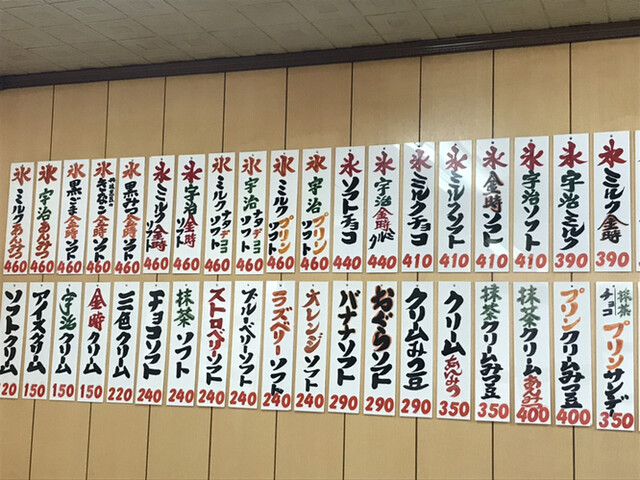 氷ミルク金時 390
氷宇治ミルク 390
氷宇治ソフト 410
氷金時ソフト 410
氷ミルクソフト 410
氷ミルクチョコ 410
氷宇治金時クルミ 440
氷ソフトチョコ 440
氷宇治プリン 460
氷ミルクプリンソフト 460
氷宇治ナタデココソフト 460
氷ミルクナタデココソフト 460
氷宇治金時ソフト 460
氷ミルク金時ソフト 460
氷黒みつ金時ソフト 460
氷きなこ金時ソフト 460
氷黒ごま金時ソフト 460
氷宇治あんみつ 460
氷ミルクあんみつ 460
抹茶チョコプリンサンデー 350
プリンクリームみつ豆 400
抹茶クリームあんみつ 400
抹茶クリームみつ豆 350
クリームあんみつ 350
クリームみつ豆 290
おぐらソフト 290
バナナソフト 290
オレンジソフト 240
ラズベリーソフト 240
ブルーベリーソフト 240
ストロベリーソフト 240
抹茶ソフト 240
チョコソフト 240
三色クリーム 220
金時クリーム 150
宇治クリーム 150
アイスクリーム 150
ソフトクリーム 20